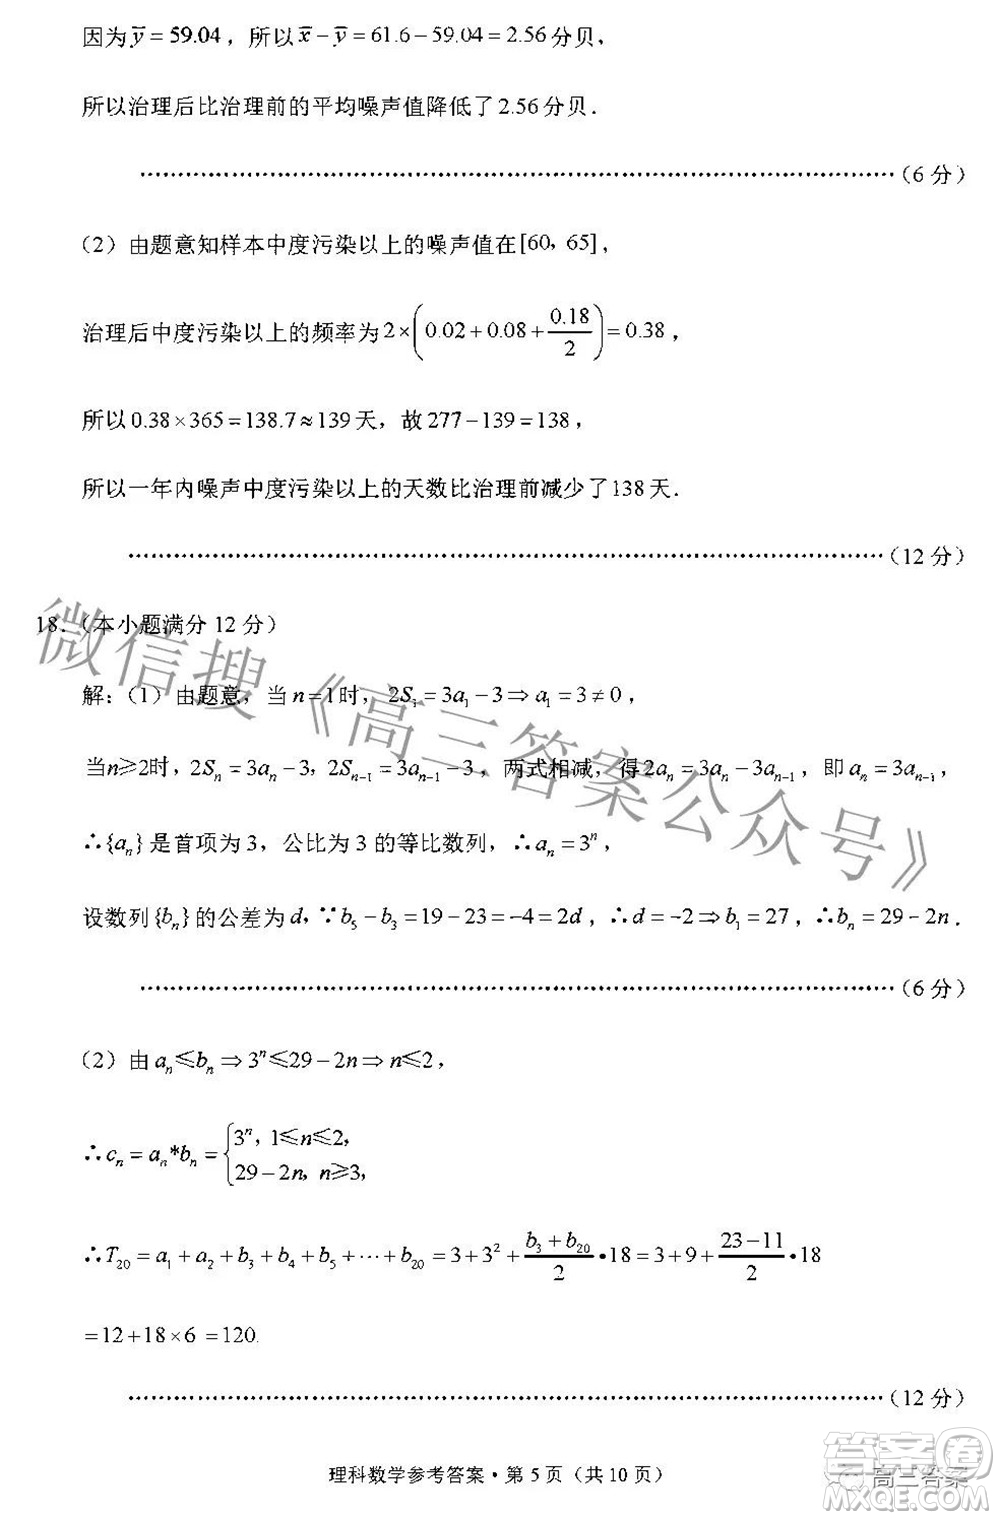 因为y̅=59.04，所以x̅−y̅=61.6−59.04=2.56分贝，
所以治理后比治理前的平均噪声值降低了2.56分贝．
……………………………………………………………………（6 分）
（2）由题意知样本中度污染以上的噪声值在[60，65]，
治理后中度污染以上的频率为2×(0.02+0.08+0.18/2)=0.38，
所以0.38×365=138.7≈139天，故277−139=138，
所以一年内噪声中度污染以上的天数比治理前减少了138天．
……………………………………………………………………（12 分）
18．（本小题满分 12 分）
解：（1）由题意，当n=1时，2S₁=3a₁−3⇒a₁=3≠0，
当n≥2时，2Sₙ=3aₙ−3，2Sₙ₋₁=3aₙ₋₁−3，两式相减，得2aₙ=3aₙ−3aₙ₋₁，即aₙ=3aₙ₋₁，
∴{aₙ}是首项为 3，公比为 3 的等比数列，∴aₙ=3ⁿ，
设数列{bₙ}的公差为d，∵b₅−b₃=19−23=−4=2d，∴d=−2⇒b₁=27，∴bₙ=29−2n．
……………………………………………………………………（6 分）
（2）由aₙ≤bₙ⇒3ⁿ≤29−2n⇒n≤2，
∴cₙ=aₙ*bₙ={3ⁿ，1≤n≤2，
29−2n，n≥3，
∴T₂₀=a₁+a₂+b₃+b₄+b₅+⋯+b₂₀=3+3²+(b₃+b₂₀)/2•18=3+9+(23−11)/2•18
=12+18×6=120.
……………………………………………………………………（12 分）
理科数学参考答案·第 5 页（共 10 页）
微信搜《高三答案公众号》
高三答案
答案圈
MXQE.COM